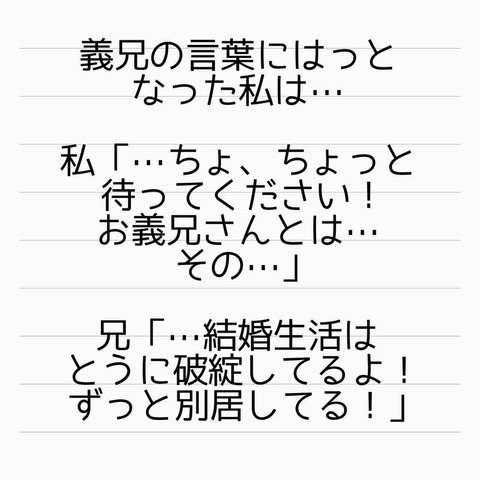 義兄の言葉にはっと
なった私は…
私「…ちょ、ちょっと
待ってください！
お義兄さんとは…
その…」
兄「…結婚生活は
とうに破綻してるよ！
ずっと別居してる！」